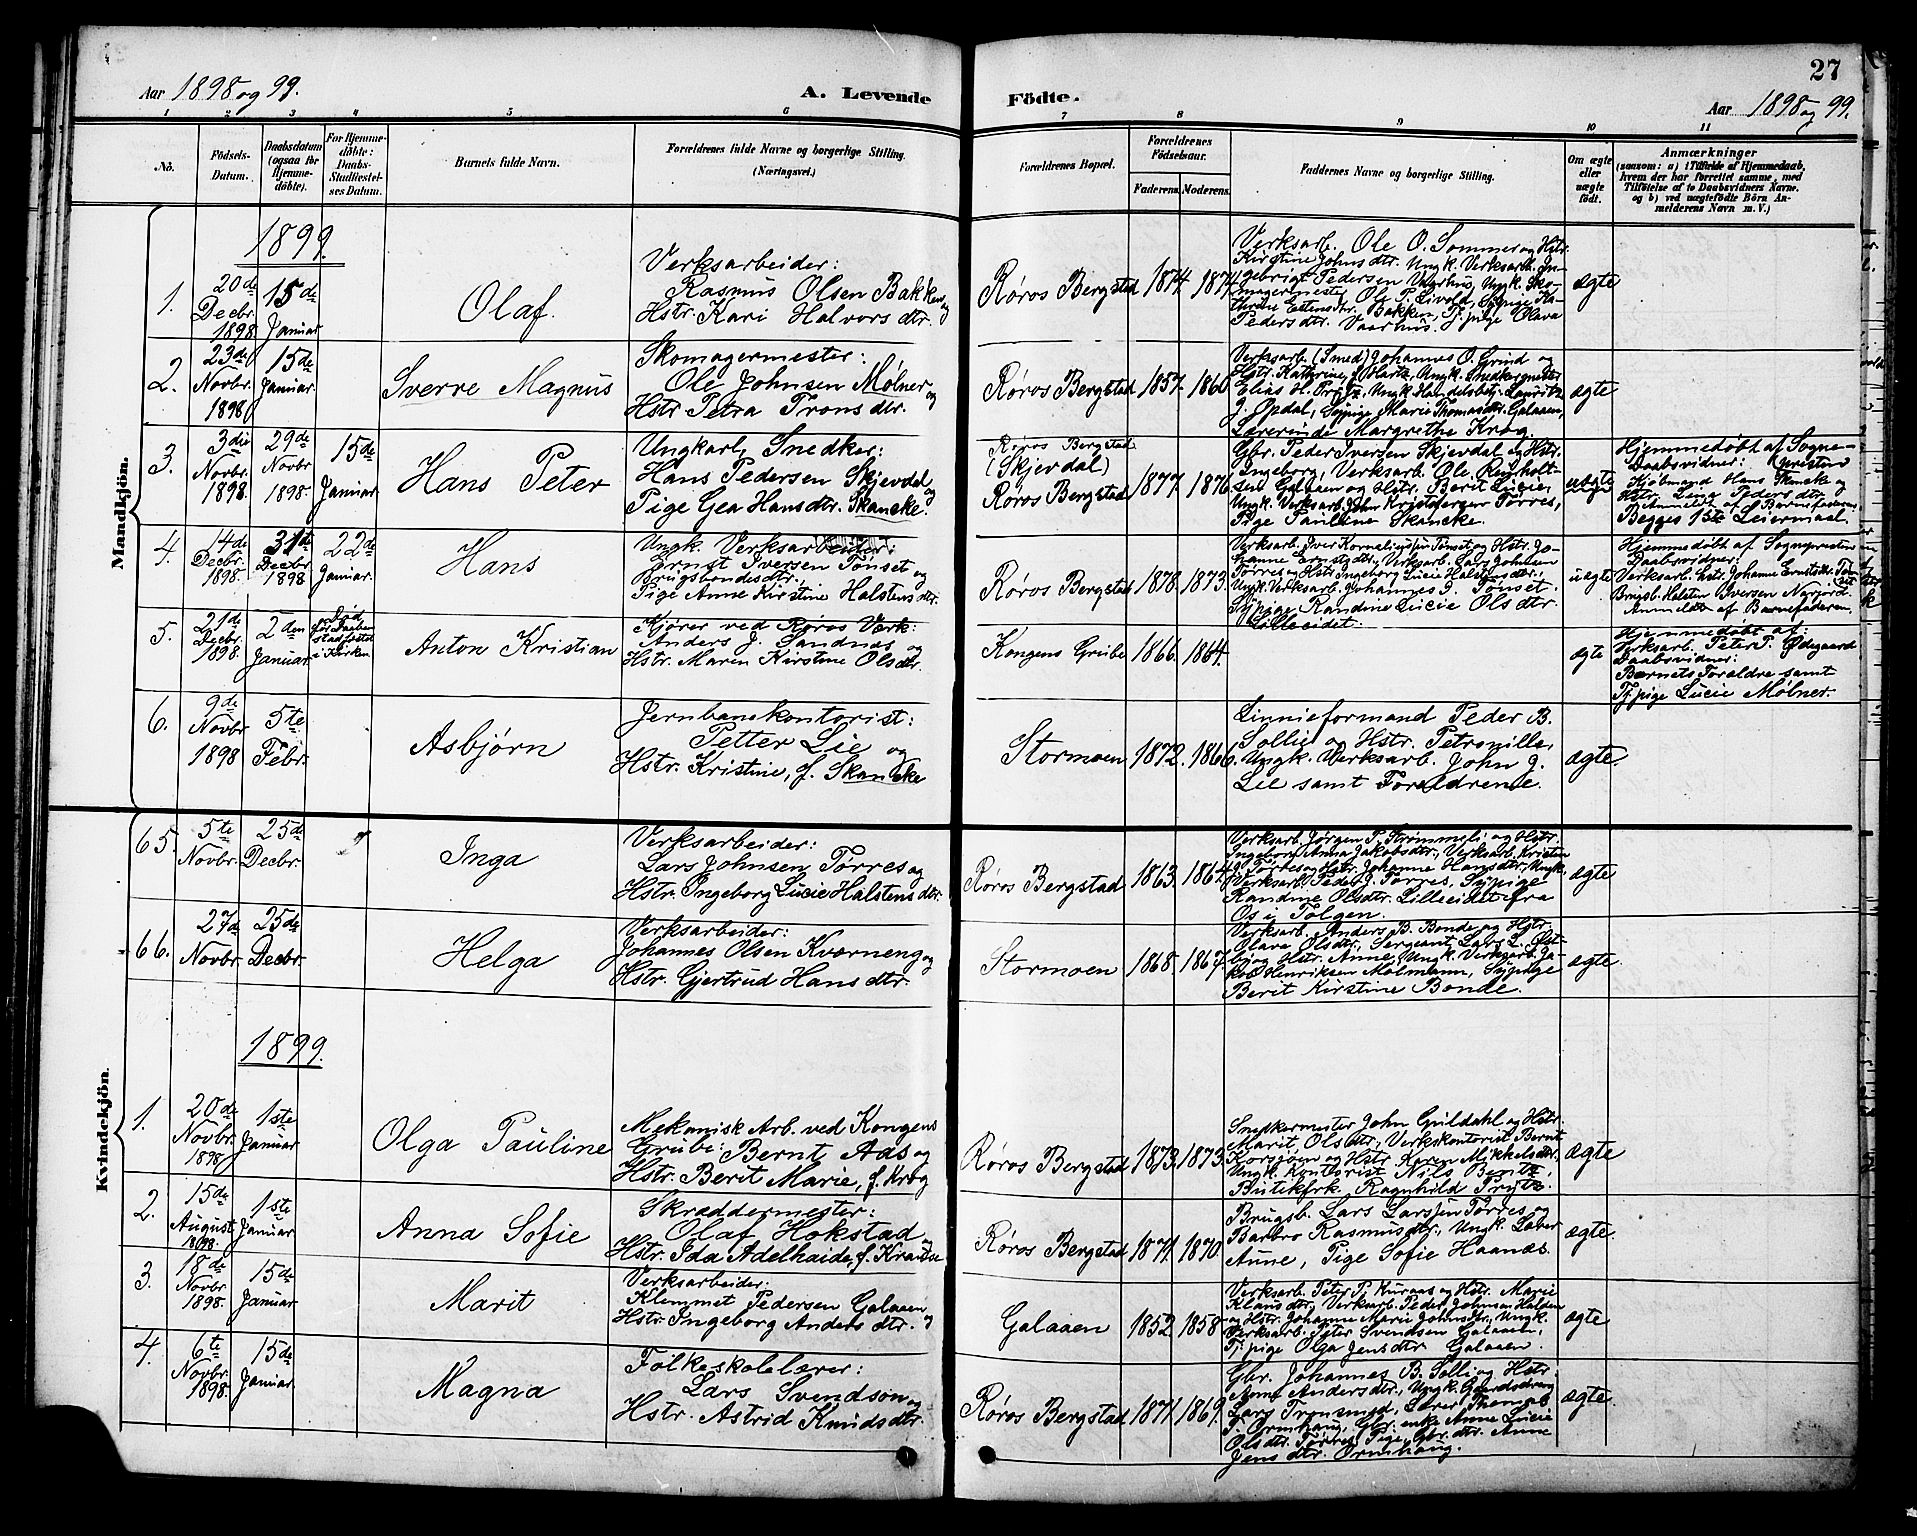 Aar 1898 og 99.
A. Levende
Födte.
27
Aar 1898 og 99.
1 2 3 4 5 6 7 8 9 10 11
No.
Födsels-Datum.
Daabsdatum (ogsaa for Hjemmedöbte).
For Hjemmedöbte: Daabs-Stadfæstelses Datum.
Barnets fulde Navn.
Forældrenes fulde Navne og borgerlige Stilling. (Næringsvei.)
Forældrenes Bopæl.
Forældrenes Födselsaar.
Faderens. Moderens.
Faddernes Navne og borgerlige Stilling.
Om ægte eller uægte födt.
Anmærkninger
(saasom: a) i Tilfælde af Hjemmedaab,
hvem der har forrettet samme, med
Tilföielse af to Daabsvidners Navne.
og b) ved uægtefödte Börn An-
melderens Navn m. V.)
Mandkjön.
1899.
1. 20de Decbr. 1898 15de Januar
Olaf.
Verksarbeider:
Rasmus Olsen Bakken og
Hstr. Kari Halvorsdtr.
Røros Bergstad 1874. 1874.
Verksarb. Ole O. Sommer og Hstr.
Kirstine Johnsdtr. Ungk. Verksarb. In-
gebrigt Pedersen Vaarhus, Ungk. Sko-
magermester Ole P. Livold, Sypige Ka-
thrine Estensdtr. Bakken, Tj.pige Olava
Pedersdtr. Vaarhus.
ægte
2. 23de Novbr. 1898 15de Januar.
Sverre Magnus
Skomagermester:
Ole Johnsen Mølner, og
Hstr. Petra Tronsdtr.
Røros Bergstad 1857. 1860.
Verksarb. (Smed) Johannes O. Grind og
Hstr. Kathrine, f. Hartz, Ungk. Snedkermester
Elias H. Prytz, Ungk. Handelsbetj. Lauritz
J. Opdal, Sypige Marie Thomasdtr. Galaaen,
Lærerinde Margrethe Krog.
ægte
3. 3die Novbr. 1898 29de Novbr 1898 15de Januar
Hans Peter
Ungkarl, Snedker:
Hans Pedersen Skjevdal og
Pige Gea Hansdtr. Skancke.
Røros Bergstad
(Skjevdal)
Røros Bergstad 1877. 1876.
Gbr. Peder Iversen Skjevdal og Hstr.
Ingeborg, Verksarb. Ole Reinholt-
sen Galaaen og Hstr. Berit Lucie,
Ungk. Verksarb. John Kristofersen Tørres,
Pige Pauline Skancke.
uægte
Hjemmedøbt af Sogne-
Daabsvidner: (præsten
Kjøbmand Hans Skancke og
Hstr. Lina Pedersdtr.
Anmeldte af Barnefaderen.
Begges 1ste Leiermaal.
4. 14de Decbr. 1898. 31de Decbr 1898 22de Januar.
Hans
Ungk. Verksarbeider:
Ernst Iversen Tønset og
Brugsbondesdtr.,
Pige Anne Kirstine Halstensdtr.
Røros Bergstad 1878. 1873.
Verksarb. Iver Korneliussen Tønset og Hstr. Jo-
hanne Ernstsdtr., Verksarb. Lars Johnsen
Tørres og Hstr. Ingeborg Lucie Halstensdtr.,
Ungk. Verksarb. Johannes I. Tønset.
Sypige Randine Lucie Olsdtr.
Lilleeidet.
uægte
Hjemmedøbt af Sognepresten
Daabsvidner:
Verksarb. hstr. Johanne Ernstsdtr. Tønset
Brugsb. Halsten Iversen Narjord.
Anmeldt af Barnefaderen.
5. 21de Decbr. 1898 2den Januar Død før Daaben stadfæstet i Kirken
Anton Kristian
Kjører ved Røros Verk:
Anders J. Sandnæs og
Hstr. Maren Kirstine Olsdtr.
Kongens Grube 1866. 1864.
ægte
Hjemmedøbt af:
Verksarb. Peter P. Ødegaard
Daabsvidner:
Barnets Forældre samt
Tj.pige Lucie Mølner.
6. 9de Novbr 1898 5te Febr.
Asbjørn
Jernbanekontorist:
Petter Lie og
Hstr. Kristine, f. Skancke
Stormoen 1872. 1866.
Linnieformand Peder B.
Sollie og Hstr. Petronille,
Ungk. Verksarb. John J.
Lie samt Forældrene.
ægte.
Kvindekjön.
65. 5te Novbr. 25de Decbr.
Inga
Verksarbeider:
Lars Johnsen Tørres og
Hstr. Ingeborg Lucie Halstensdtr.
Røros Bergstad 1863. 1864.
Verksarb. Jørgen P. Strømmeli og Hstr.
Ingeborg Anna Jakobsdtr., Verksarb. Kristen
J. Tørres og Hstr. Johanne Hansdtr., Ungk.
Verksarb. Peder J. Tørres, Sypige
Randine Olsdtr. Lilleeidet fra
Os i Tolgen.
ægte
66. 27de Novbr. 25de Decbr.
Helga
Verksarbeider:
Johannes Olsen Kværneng og
Hstr. Gjertrud Hansdtr.
Stormoen 1868. 1867.
Verksarb. Anders B. Bonde og Hstr.
Olava Olsdtr., Sergeant Lars L. Øst-
by og Hstr. Anne, Ungk. Verksarb. Ja-
kob Henriksen Mølmann, Sypige
Berit Kirstine Bonde.
ægte.
1899.
1. 20de Novbr. 1898 1ste Januar
Olga Pauline
Mekanisk Arb. ved Kongens
Grube: Bernt Aas og
Hstr. Berit Marie, f. Krog
Røros Bergstad 1873. 1873.
Snedkermester John Guldahl og Hstr.
Marit Olsdtr., Verkskontorist Bernt
Korssjøen og Hstr. Karen Mikkelsdtr.,
Ungk. Kontorist Nils Bentz,
Butikfrk. Ragnhild Prytz.
ægte
2. 15de August 1898. 1ste Januar
Anna Sofie
Skræddermester:
Olaf Hokstad og
Hstr. Ida Adelhaide, f. Krantse
Røros Bergstad 1871. 1870.
Brugsb. Lars Larssen Tørres og
Barbro Rasmusdtr., Ungk. Lærer
Aune, Pige Sofie Haanæs.
ægte.
3. 18de Novbr 1898. 15de Januar
Marit
Verksarbeider:
Klemmet Pedersen Galaaen og
Hstr. Ingeborg Andersdtr.
Galaaen 1852. 1858.
Verksarb. Peter P. Kuraas og Hstr. Marie
Klausdtr., Verksarb. Peder Johnsen Halden
og Hstr. Johanne Marie Johnsdtr., Ungk.
Verksarb. Peter Svendsen Galaaen,
Tj.pige Olga Jensdtr. Galaaen.
ægte
4. 6te Novbr. 1898. 15de Januar
Magna
Folkeskolelærer:
Lars Svendson og
Hstr. Astrid Knudsdtr.
Røros Bergstad 1871. 1869.
Gbr. Johannes B. Solli og Hstr.
Anne Andersdtr., Ungk. Gaardsdreng
Lars Tronsmed, Lærer Thomas
P. Ormhaug, Gbr. enke Anne Lucie
Olsdtr. Tørres, Pige, Gbr. dtr. Anne
Jensdtr. Ormhaug.
ægte.